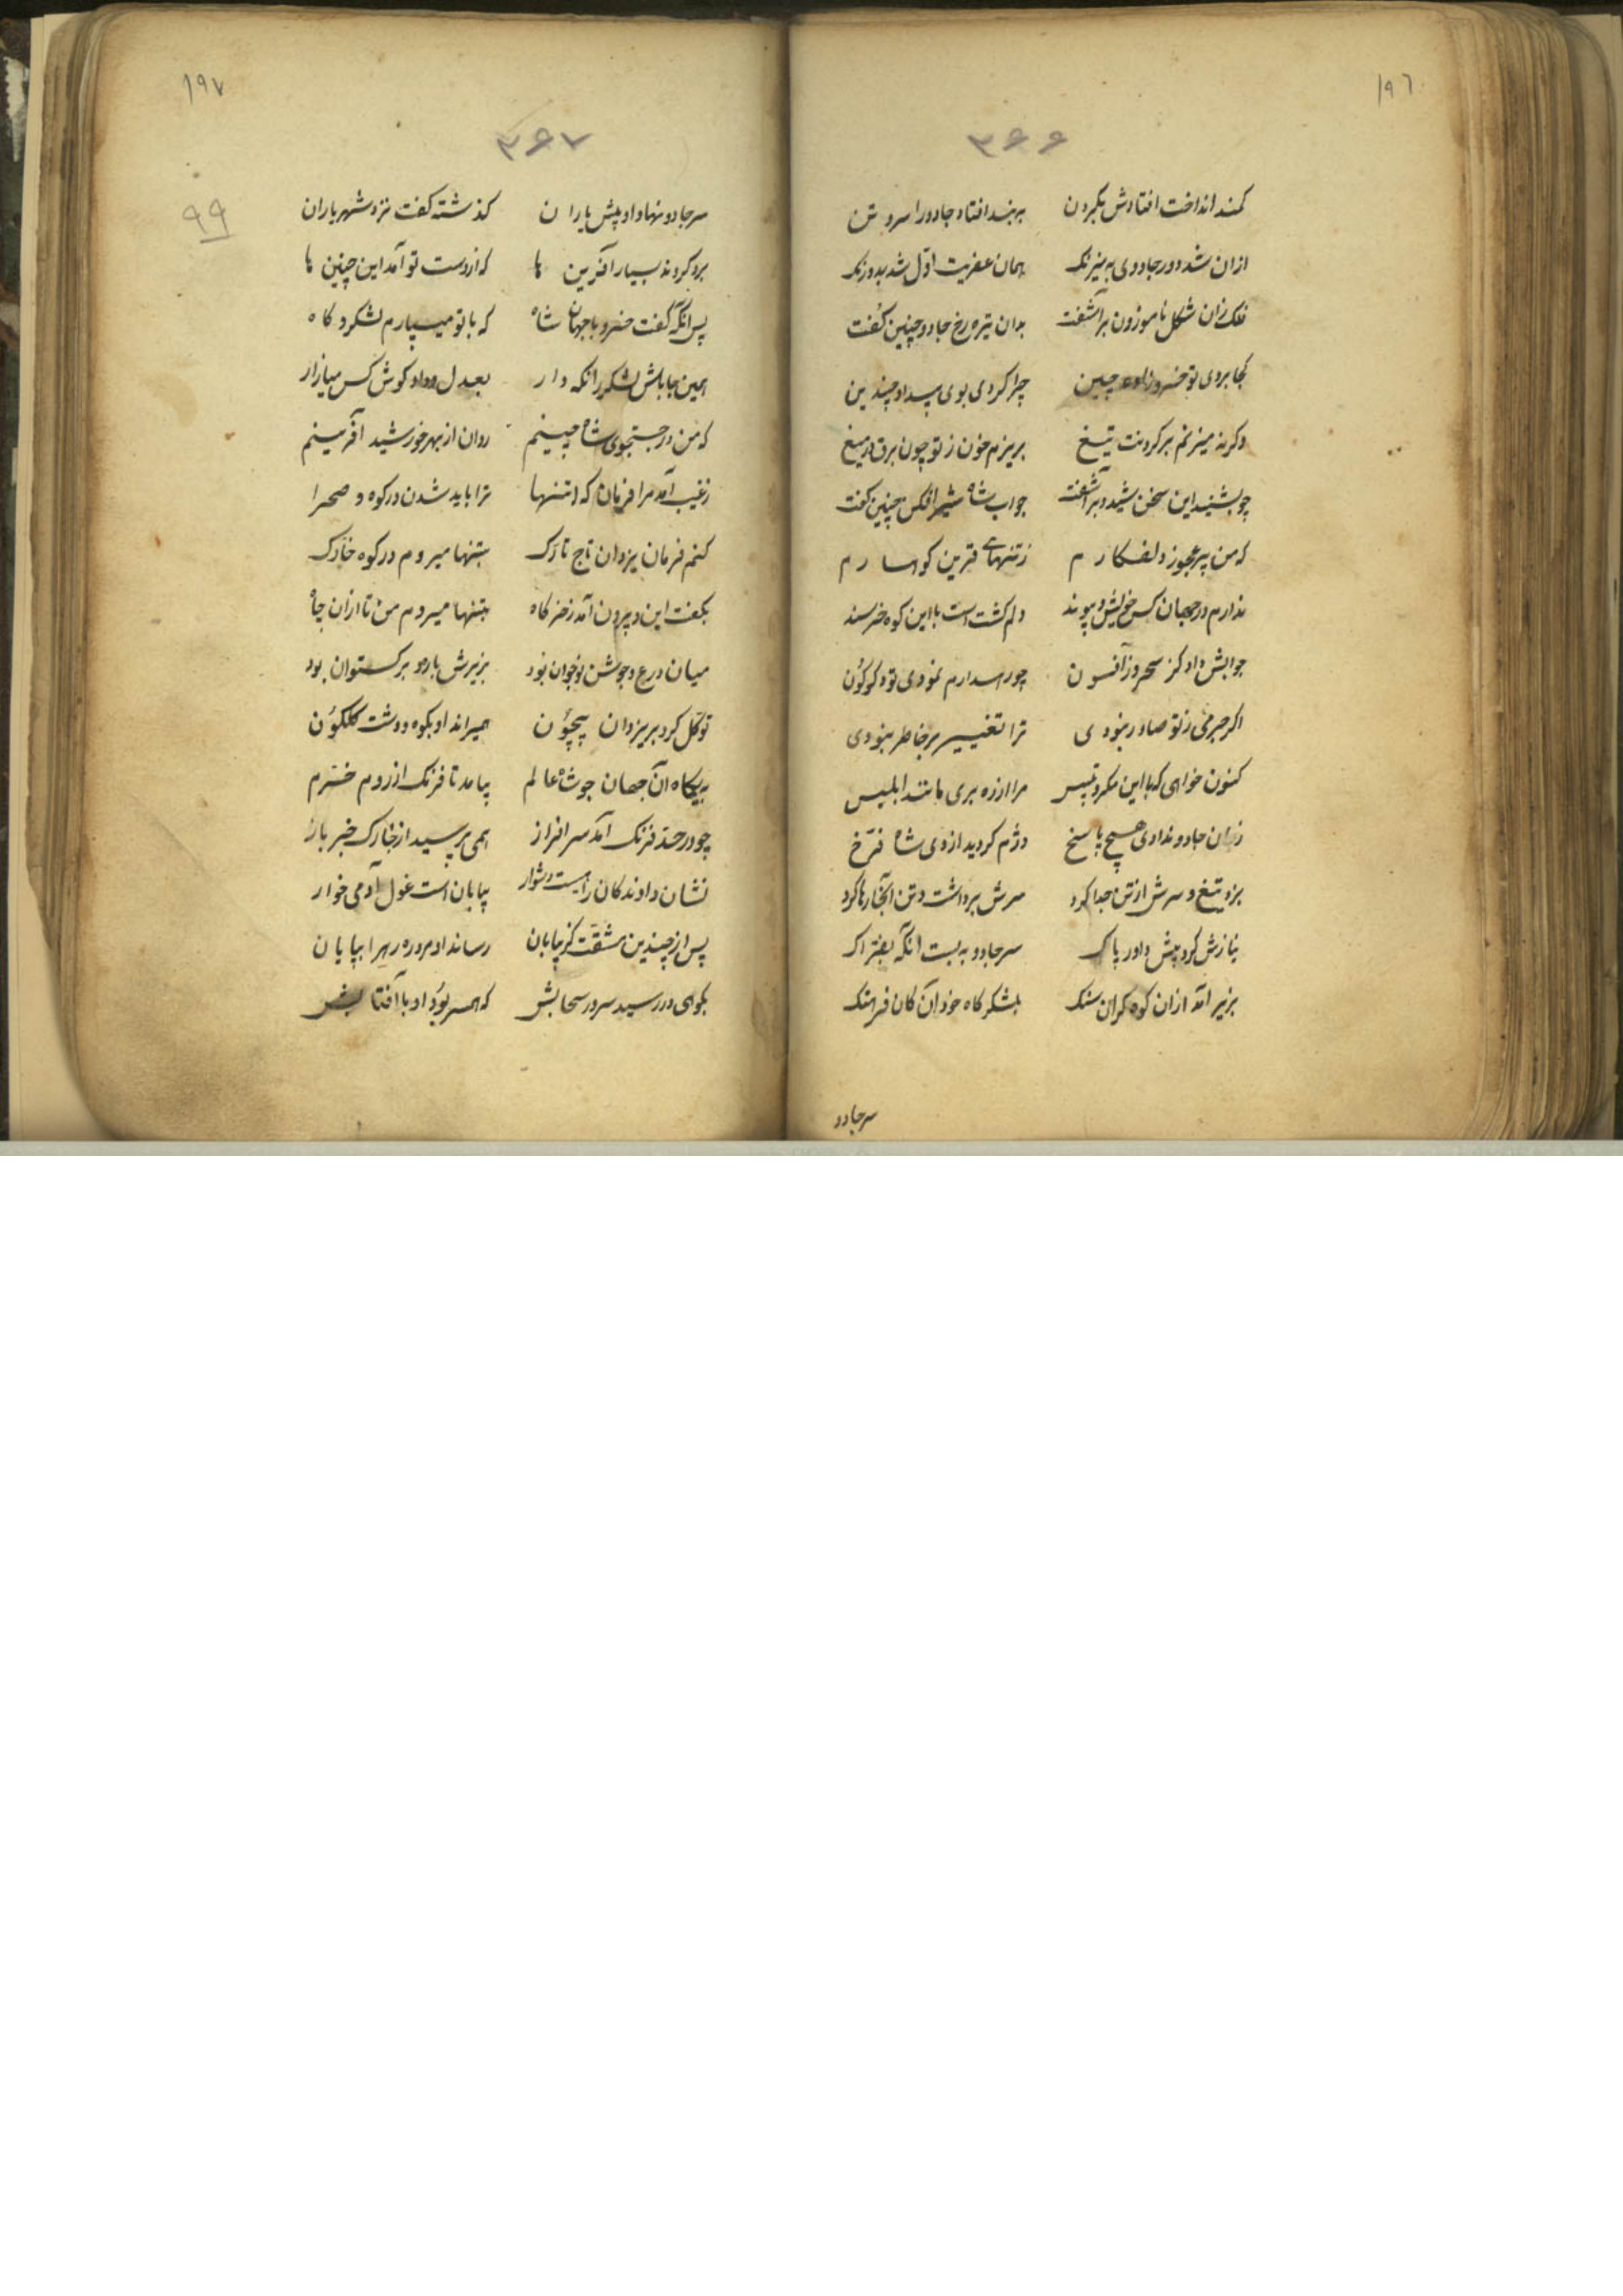 ۱۹٦
۳۶۶
کمند انداخت افتادش بکردن ببند افتاد جادو را سر و تن
ازان شد دور جادوی به نیرنک همان عفریت اوّل شد بدو زنک
فلک زان شکل ناموزون برآشفت بدان تیره رخ جادو چنین کفت
کجا بردی تو خسرو زاده چین چرا کردی بوی بیداد چندین
وکر نه میزنم بر کردنت تیغ بریزم خون ز تو چون برق در میغ
چو بشنید این سخن شید و برآشفت جواب شاه شیرافکن چنین کفت
که من پیر عجوز دلفکارم ز تنهائی قرین کوهسارم
ندارم در جهان کس خویش و پیوند دلم کشت است با این کوه خرسند
جوابش داد کز سحر و ز افسون چو رهدارم نمودی تو دکرکون
اکر جرمی ز تو صادر نبودی ترا تغییر بر خاطر نبودی
کنون خواهی که با این مکر و تلبیس مرا از ره بری مانند ابلیس
زبان جادو ندادی هیچ پاسخ دژم کردید از وی شاه فرّخ
بزد تیغ و سرش از تن جدا کرد سرش برداشت و تن آنجا رها کرد
نیازش کرد پیش داور پاک سر جادو به بست انکه بفتراک
بزیر آمد ازان کوه کران سنک بلشکرکاه خود آن کان فرهنک
سرجادو
۱۹۷
۳۶۷
۹۹
سر جادو نهاد او پیش یاران کذشته کفت نزد شهریاران
برو کردند بسیار آفرین ها که از دست تو آمد این چنین ها
پس انکه کفت خسرو با جهان شاه که با تو میسپارم لشکر و کاه
همین جا باش لشکر را نکه دار بعدل و داد کوش کس میازار
که من در جستجوی شاه چینم روان از بهر خورشید آفرینم
ز غیب آمد مرا فرمان که تنها ترا باید شدن در کوه و صحرا
کنم فرمان یزدان تاج تارک بتنها میروم در کوه خارک
بکفت این و برون آمد ز خرکاه بتنها میروم من تا ازان چاه
میان درع و جوشن نوجوان بود بزیرش باره و برکستوان بود
توکّل کرد بر یزدان بیچون همیراند او بکوه و دشت کلکون
به پیکاه آن جهان جو شاه عالم بیامد تا فرنک از روم خرّم
چو در حدّ فرنک آمد سرافراز همی پرسید از خارک خبر باز
نشان دادند کان راهیست دشوار بیابان است غول آدمی خوار
پس از چندین مشقّت کز بیابان رساند او مرد ره رهرا بپایان
بکوهی در رسید سر در سحابش که همسر بود او با آفتابش